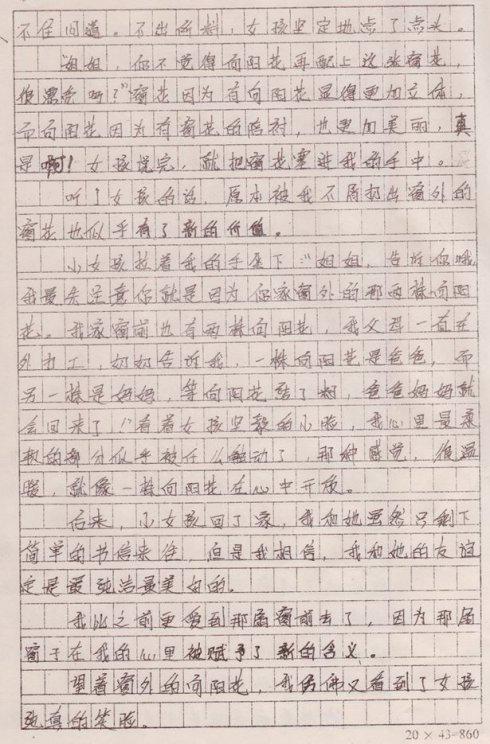 不住问道。不出所料，女孩坚定地点了点头。
“姐姐，你不觉得向阳花再配上这张窗花，
很漂亮吗？”窗花因为有向阳花显得更加立体，
而向阳花因为有窗花的陪衬，也更加美丽，真
是啊！女孩说完，就把窗花塞进我的手中。
听了女孩的话，原本被我不屑扔出窗外的
窗花也似乎有了新的价值。
小女孩拉着我的手坐下：“姐姐，告诉你哦，
我最先注意你就是因为你家窗外的那两株向阳
花。我家窗前也有两株向阳花，我父母一直在
外打工，奶奶告诉我，一株向阳花是爸爸，而
另一株是妈妈，等向阳花结了籽，爸爸妈妈就
会回来了！”看着女孩坚毅的小脸，我心里最柔
软的部分似乎被什么触动了，那种感觉，很温
暖，就像一株向阳花在心中开放。
后来，小女孩回了家，我和她虽然只剩下
简单的书信来往，但是我相信，我和她的友谊
定是最纯洁最美好的。
我比之前更爱到那扇窗前去了，因为那扇
窗于在我的心里被赋予了新的含义。
望着窗外的向阳花，我仿佛又看到了女孩
纯真的笑脸。
20 × 43=860